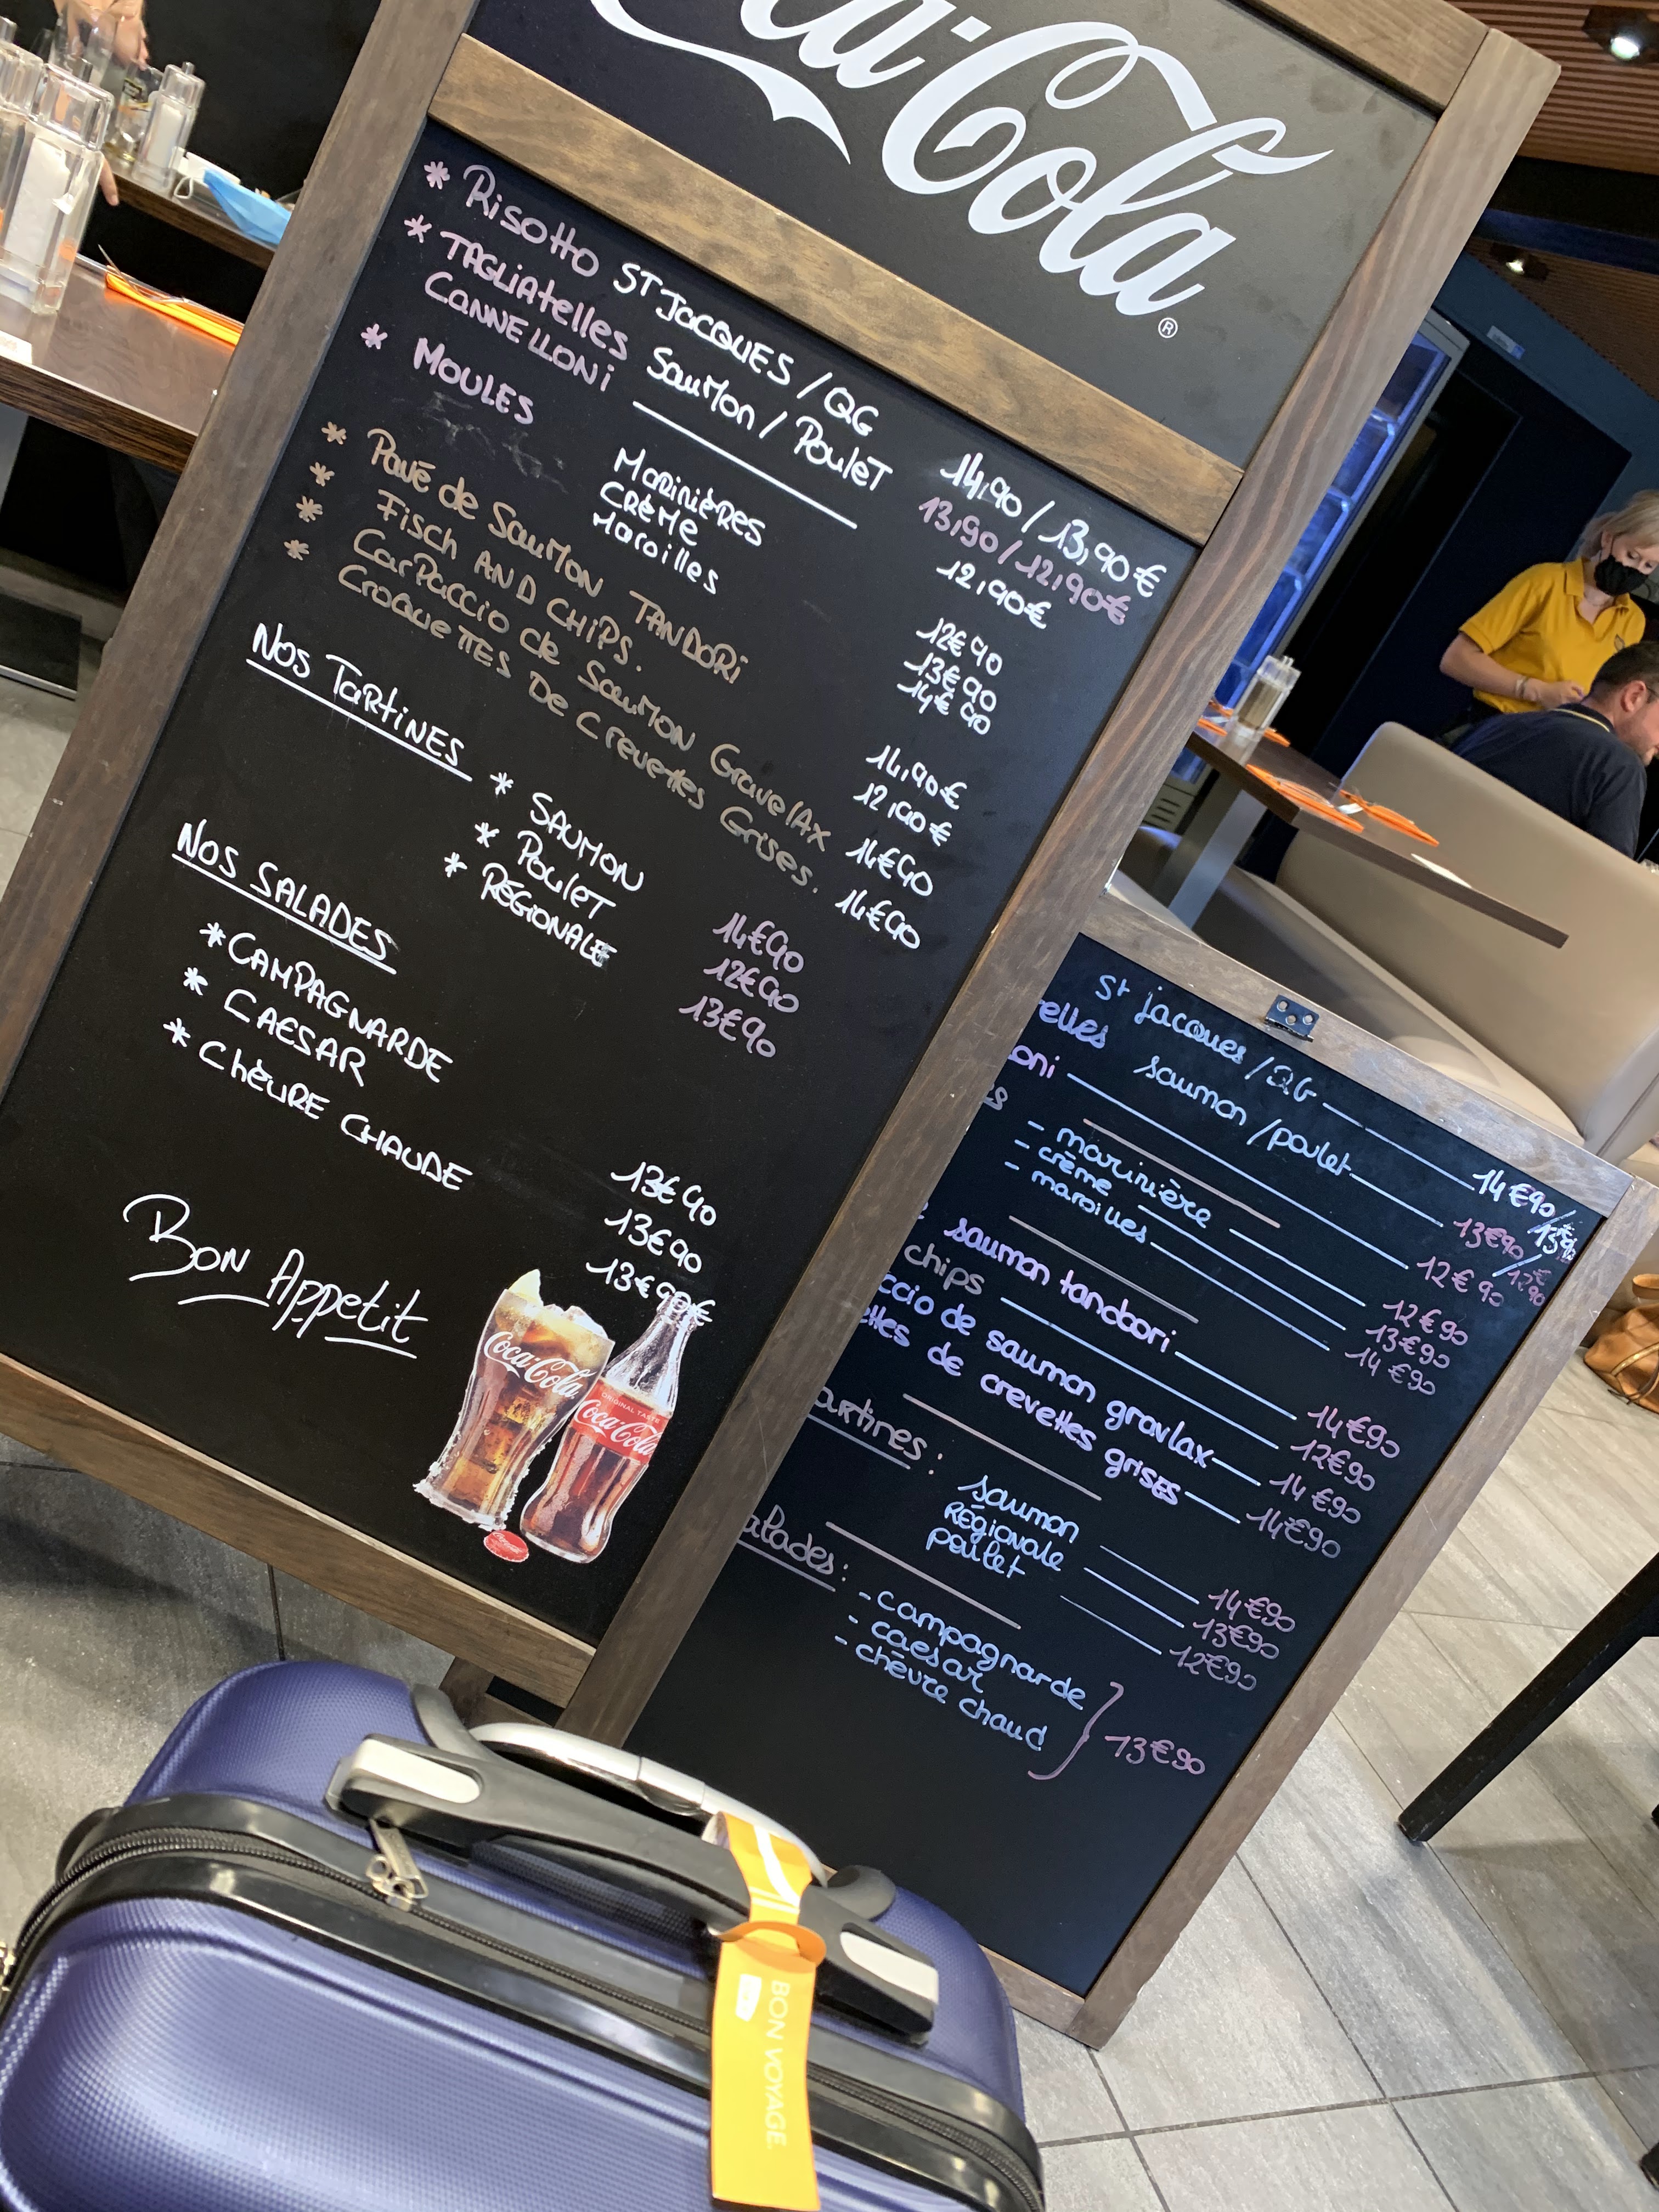 Coca-Cola
®
* Risotto ST JACQUES / QG 14,90 / 13,90€
* TAGLiAtelles SauMon / PouleT 13,90 / 12,90€
CANNELLONi 12,90€
* MOULES
MARiNiÈRES 12€90
CRÈME 13€90
Maroilles 14€90
* Pavé de SauMON TANDORi 14,90€
* Fisch AND CHiPS. 12,90€
* CarPaccio de SauMON GravelAx 14€90
* CroqueTTES De Crevettes Grises. 14€90
NOS TaRtiNES
* SAUMON 14€90
* PouleT 12€90
* RÉGIONALE 13€90
NOS SALADES
* CAMPAGNARDE 13€90
* CAESAR 13€90
* ChÈVRE CHAUDE 13€90€
Bon Appetit
Coca-Cola
ORIGINAL TASTE
Coca-Cola
St jacques / QG 14€90 / 13€90
elles saumon / poulet 13€90 / 12€90
oni 12€90
es
- marinière 12€90
- crème 13€90
- maroilles 14€90
saumon tandoori 14€90
chips 12€90
ccio de saumon gravlax 14€90
ettes de crevettes grises 14€90
artines :
saumon 14€90
RÉGIONALE 13€90
poulet 12€90
alades :
- campagnarde
- caesar
- chèvre chaud
13€90
BON VOYAGE